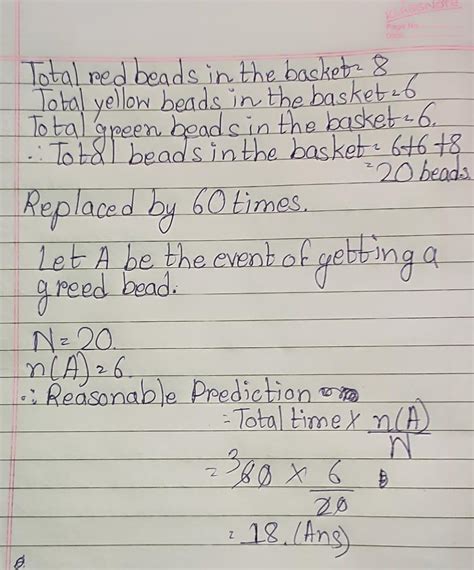 Total red beads in the basket = 8
Total yellow beads in the basket = 6
Total green beads in the basket = 6.
∴ Total beads in the basket = 6+6+8
= 20 beads
Replaced by 60 times.
Let A be the event of getting a
greed bead.
N = 20.
n(A) = 6.
∴ Reasonable Prediction
= Total time × n(A)/N
= 3 60 × 6/20
= 18. (Ans)